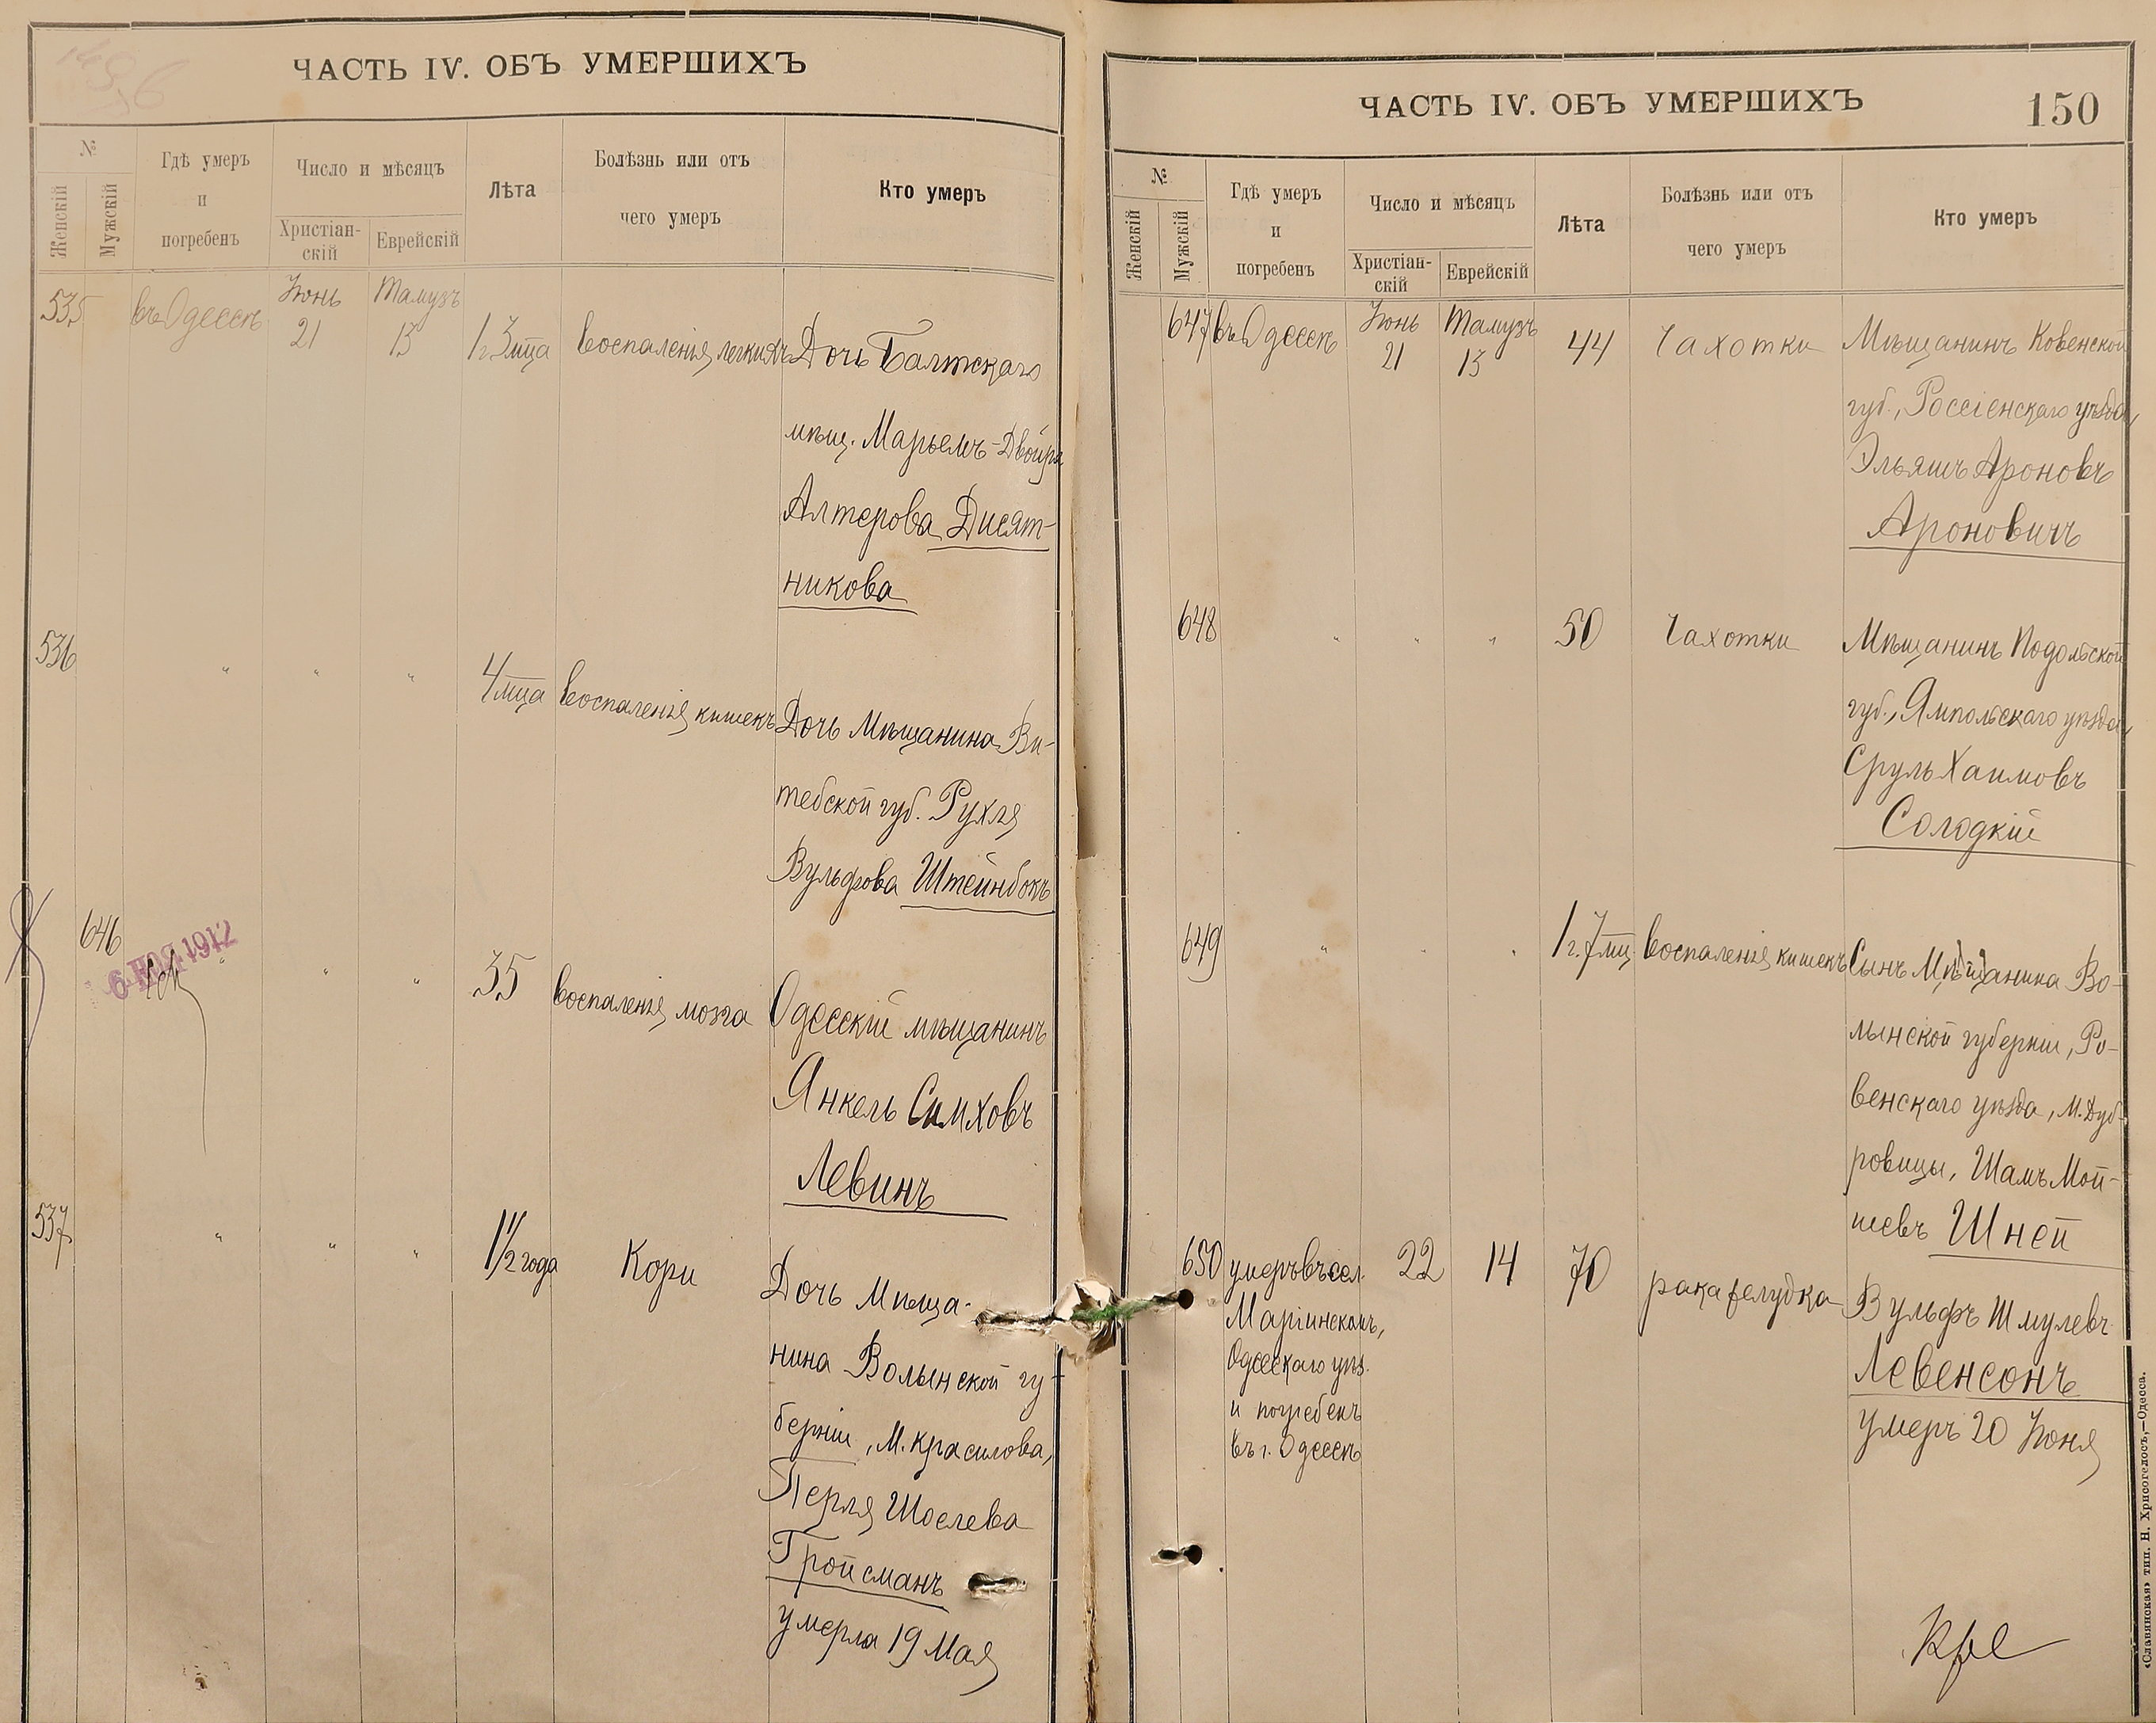 ЧАСТЬ IV. ОБЪ УМЕРШИХЪ
№
Женскій
Мужскій
Гдѣ умеръ
и
погребенъ
Число и мѣсяцъ
Христіан-
скій
Еврейскій
Лѣта
Болѣзнь или отъ
чего умеръ
Кто умеръ
535
въ Одессѣ
Іюнь
21
Тамузъ
13
1 г. 3 мца
воспаленія легкихъ
Дочь Балтскаго
мѣщ. Марьемъ-Двойра
Алтерова Дисят-
никова
536
" " "
4 мца
воспаленія кишекъ
Дочь Мѣщанина Ви-
тебской губ. Рухля
Вульфова Штейнбокъ
646
6 НОЯ 1912
" " "
35
воспаленія мозга
Одесскій мѣщанинъ
Янкель Симховъ
Левинъ
537
" " "
1 1/2 года
Кори
Дочь Мѣща-
нина Волынской гу-
берніи, м. Красилова,
Перля Шоелева
Гройсманъ
умерла 19 Мая
ЧАСТЬ IV. ОБЪ УМЕРШИХЪ
150
№
Женскій
Мужскій
Гдѣ умеръ
и
погребенъ
Число и мѣсяцъ
Христіан-
скій
Еврейскій
Лѣта
Болѣзнь или отъ
чего умеръ
Кто умеръ
647
въ Одессѣ
Іюнь
21
Тамузъ
13
44
Чахотки
Мѣщанинъ Ковенской
губ., Россіенскаго уѣзда,
Эльяшъ Ароновъ
Ароновичъ
648
" " "
50
Чахотки
Мѣщанинъ Подольской
губ., Ямпольскаго уѣзда,
Сруль Хаимовъ
Солодкій
649
" " "
1 г. 7 мц.
воспаленія кишекъ
Сынъ Мѣщанина Во-
лынской губерніи, Ро-
венскаго уѣзда, м. Дуб-
ровицы, Шамъ Мой-
шевъ Шней
650
умеръ въ сел.
Маріинскомъ,
Одесскаго уѣз.
и погребенъ
въ г. Одессѣ
22
14
70
рака желудка
Вульфъ Шмулевъ
Левенсонъ
умеръ 20 Іюня
«Славянская» тип. Н. Хрисогелосъ,—Одесса.